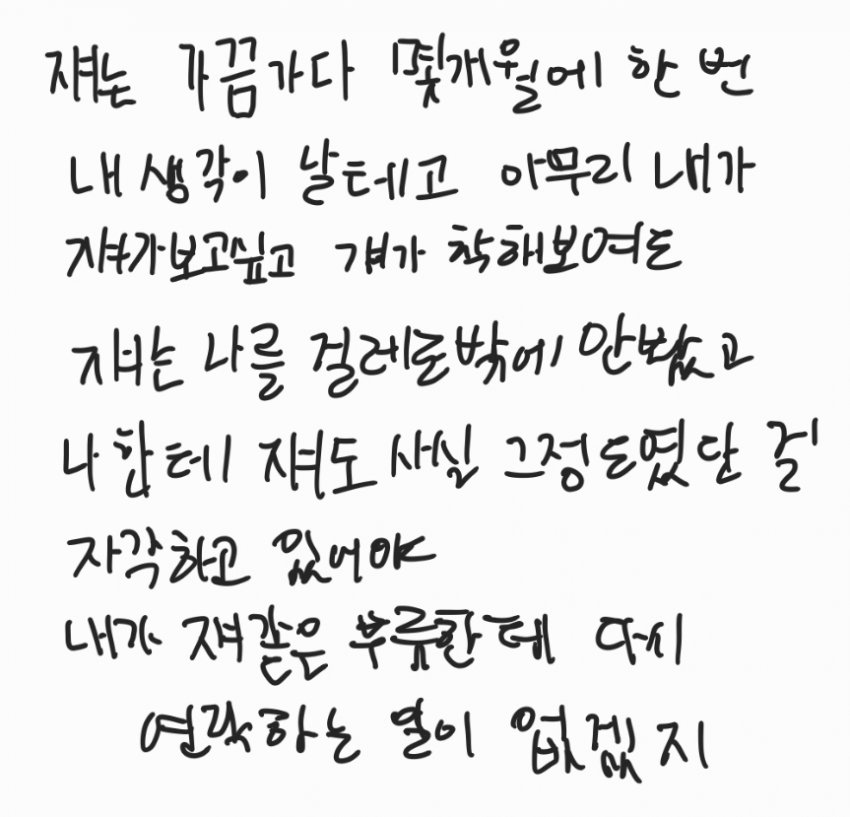 쟤는 가끔가다 몇개월에 한 번
내 생각이 날테고 아무리 내가
쟤가보고싶고 걔가 착해보여도
쟤는 나를 걸레로밖에 안봤고
나한테 쟤도 사실 그정도였단 걸
자각하고 있어야
내가 쟤같은 부류한테 다시
연락하는 일이 없겠지